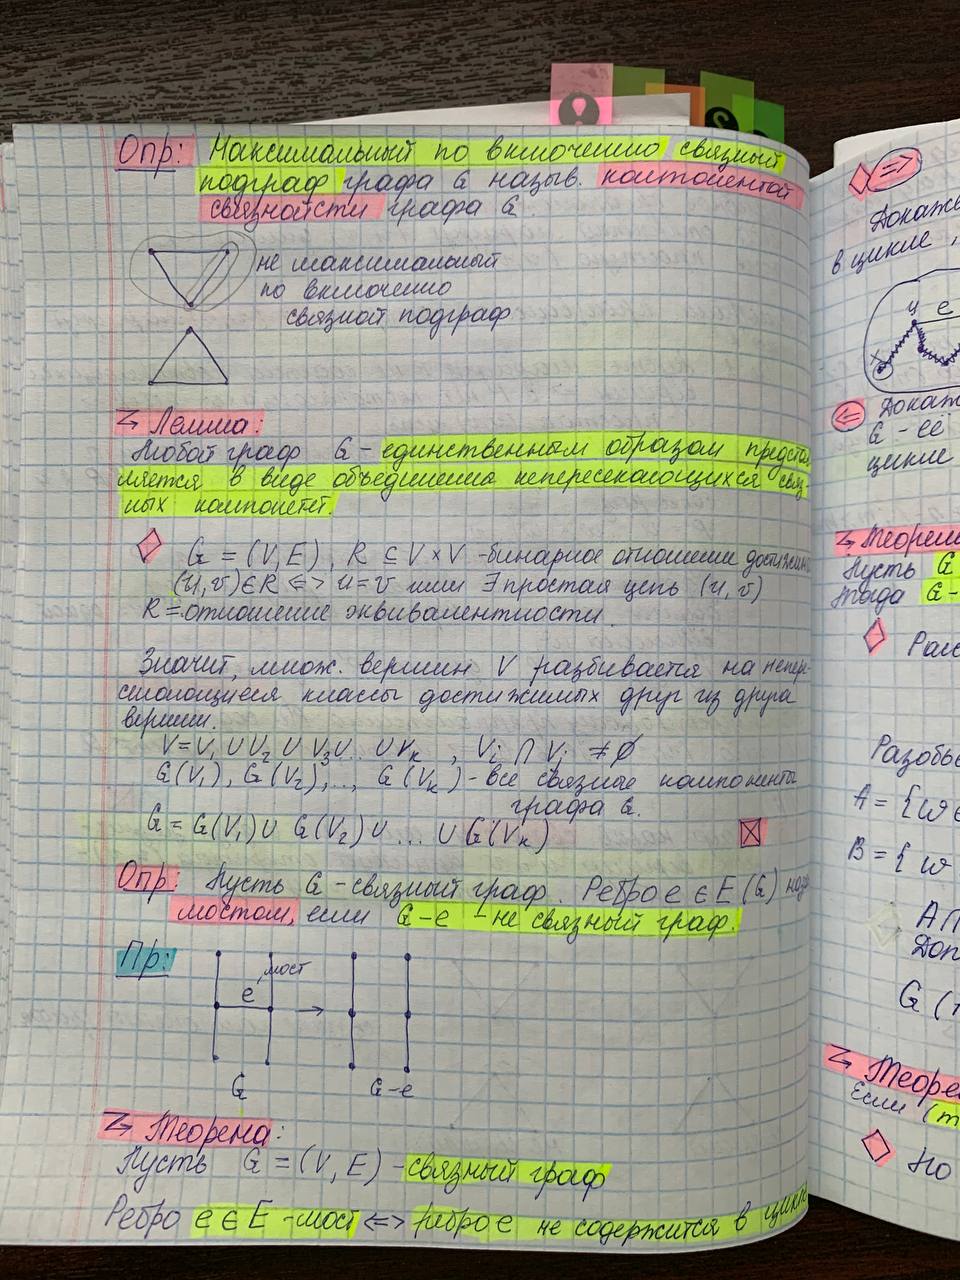 Опр: Максимальный по включению связный
подграф графа G назыв. компонентой
связности графа G.
не максимальный
по включению
связной подграф
Лемма:
Любой граф G - единственным образом представ
ляется в виде объединения непересекающихся связ
ных компонент.
G = (V,E), R ⊆ V×V - бинарное отношение достижим
(u,v)∈R <=> u=v или ∃ простая цепь (u,v)
R = отношение эквивалентности.
Значит, множ. вершин V разбивается на непере-
секающиеся классы достижимых друг из друга
вершин.
V = V₁ ∪ V₂ ∪ V₃ ∪ ... ∪ Vₖ , Vᵢ ∩ Vⱼ ≠ ∅
G(V₁), G(V₂), ..., G(Vₖ) - все связные компоненты
графа G.
G = G(V₁) ∪ G(V₂) ∪ ... ∪ G(Vₖ)
Опр: Пусть G - связный граф. Ребро e ∈ E(G) назы
мостом, если G-e - не связный граф.
Пр:
мост
e
G
G-e
Теорема:
Пусть G = (V,E) - связный граф
Ребро e ∈ E - мост <=> ребро e не содержится в цикле
=>
Докаже
в цикле,
u
e
x
<=
Докаж
G - её
цикле
Теорем
Пусть G
Тогда G-
Расс
Разобье
A = {w ∈
B = {w
A∩
Доп
G(
Теоре
Если (m
Но